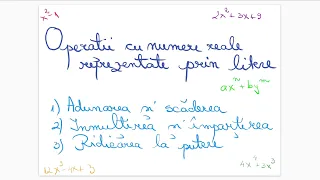 x² - 1
2x² + 3x + 9
Operatii cu numere reale
reprezentate prin litere
axⁿ + byᵐ
1) Adunarea si scăderea
2) Inmultirea si împartirea
3) Ridicarea la putere
12x³ - 4x + 3